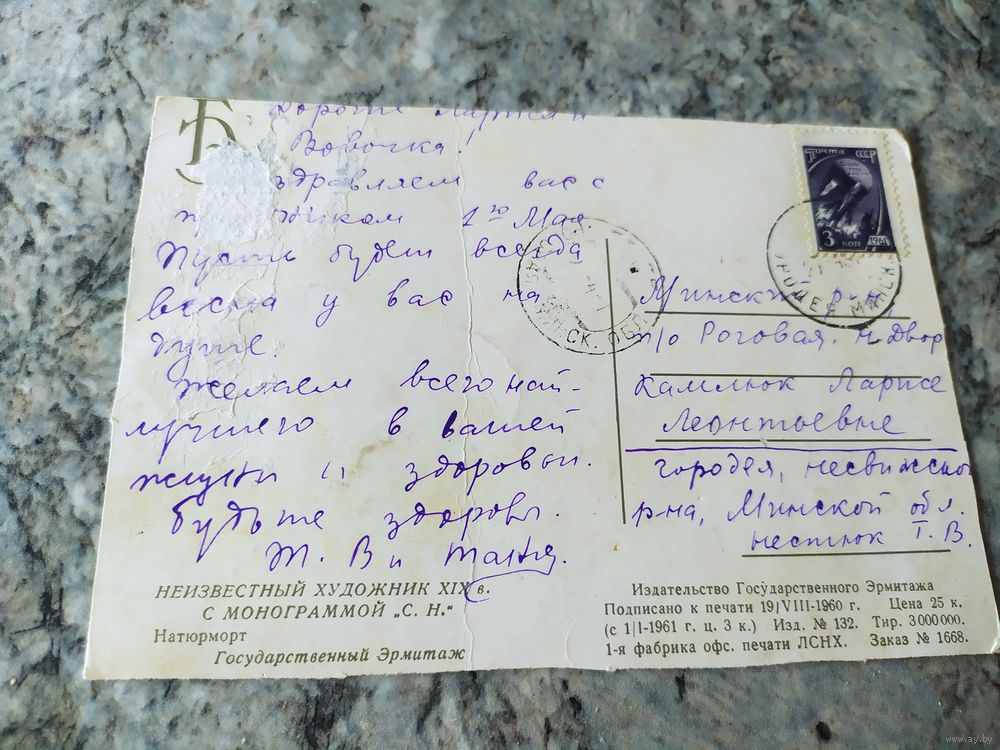 Дорогие Лариса и
Вовочка!
здравляем вас с
1го Мая.
Пусть будет всегда
весна у вас на
душе.
Желаем всего най-
лучшего в вашей
жизни и здоровьи.
будьте здоровы.
Т. В и Таня.
НЕИЗВЕСТНЫЙ ХУДОЖНИК XIX в.
С МОНОГРАММОЙ „С. Н."
Натюрморт
Государственный Эрмитаж
ПОЧТА СССР
3 КОП 1961
ГОРОДЕЯ МИНСК
МИНСК. ОБЛ.
Минский р-н,
п/о Роговая. н. Двор
Камлюк Ларисе
Леонтьевне
городея, несвижского
р-на, Минской обл.
нестюк Т. В.
Издательство Государственного Эрмитажа
Подписано к печати 19/VIII-1960 г. Цена 25 к.
(с 1/I-1961 г. ц. 3 к.) Изд. № 132. Тир. 3 000 000.
1-я фабрика офс. печати ЛСНХ. Заказ № 1668.
www.ay.by